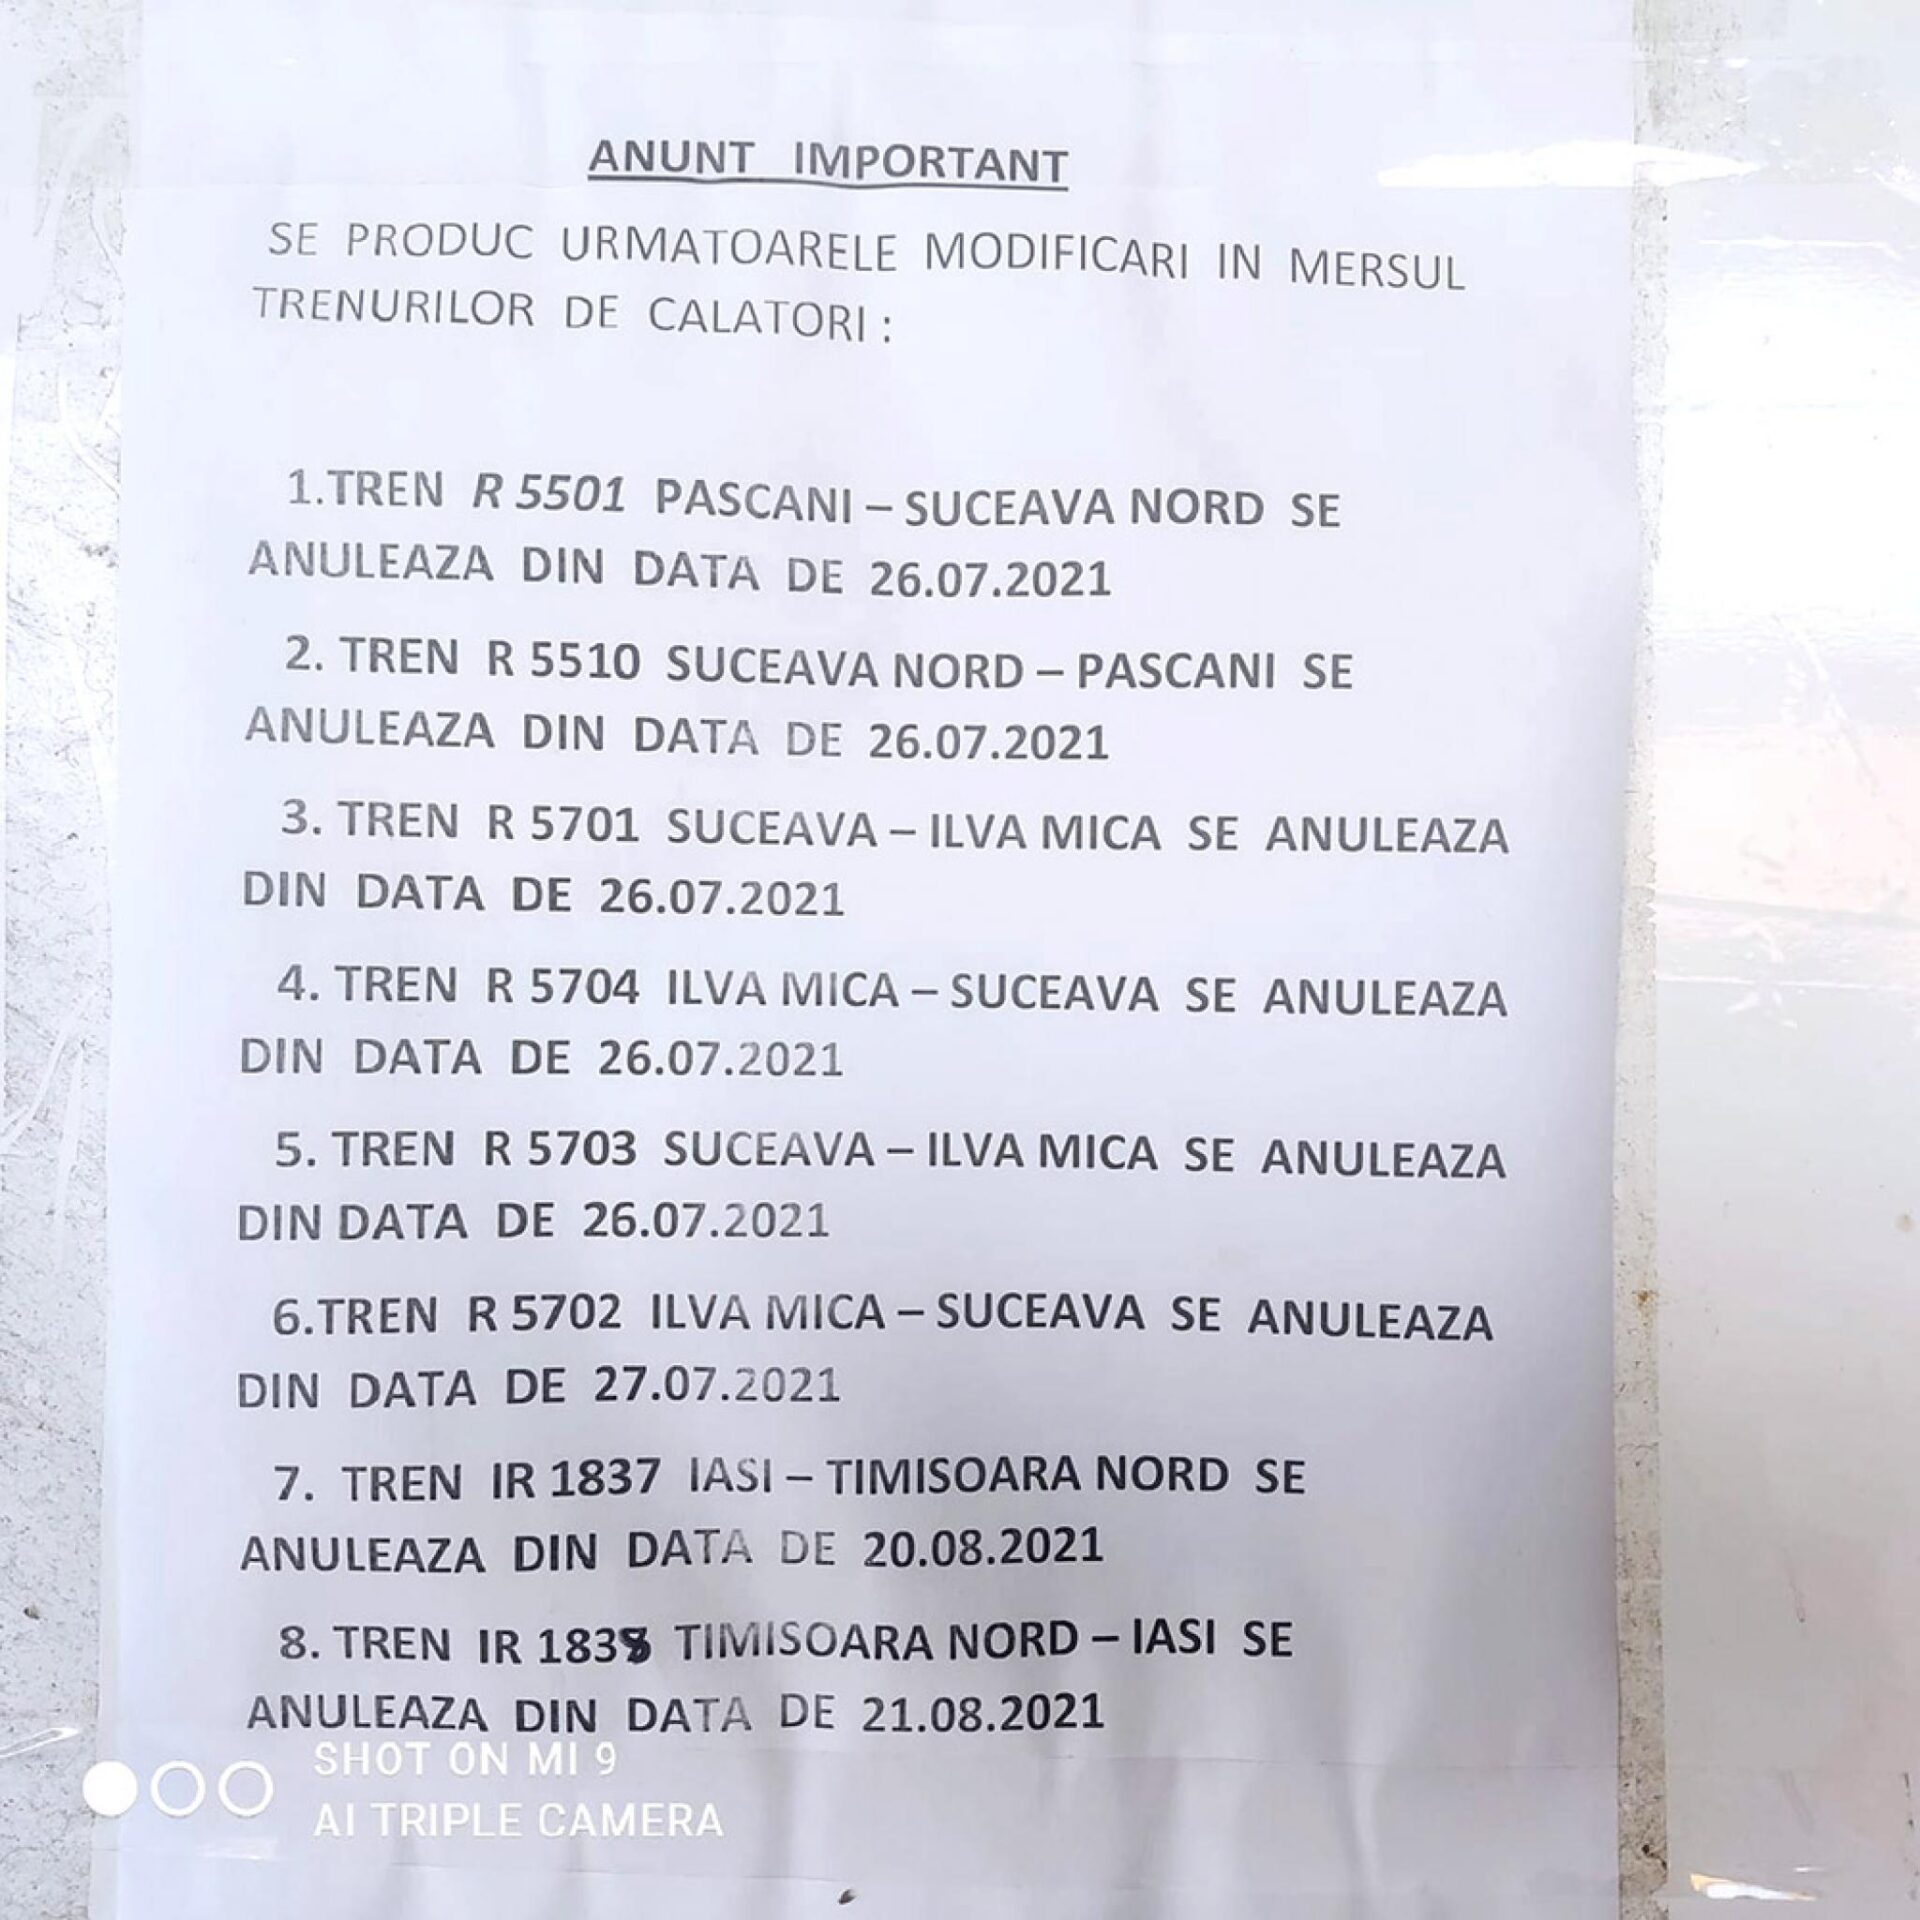 ANUNT IMPORTANT
SE PRODUC URMATOARELE MODIFICARI IN MERSUL
TRENURILOR DE CALATORI :
1.TREN R 5501 PASCANI – SUCEAVA NORD SE
ANULEAZA DIN DATA DE 26.07.2021
2. TREN R 5510 SUCEAVA NORD – PASCANI SE
ANULEAZA DIN DATA DE 26.07.2021
3. TREN R 5701 SUCEAVA – ILVA MICA SE ANULEAZA
DIN DATA DE 26.07.2021
4. TREN R 5704 ILVA MICA – SUCEAVA SE ANULEAZA
DIN DATA DE 26.07.2021
5. TREN R 5703 SUCEAVA – ILVA MICA SE ANULEAZA
DIN DATA DE 26.07.2021
6.TREN R 5702 ILVA MICA – SUCEAVA SE ANULEAZA
DIN DATA DE 27.07.2021
7. TREN IR 1837 IASI – TIMISOARA NORD SE
ANULEAZA DIN DATA DE 20.08.2021
8. TREN IR 1838 TIMISOARA NORD – IASI SE
ANULEAZA DIN DATA DE 21.08.2021
SHOT ON MI 9
AI TRIPLE CAMERA